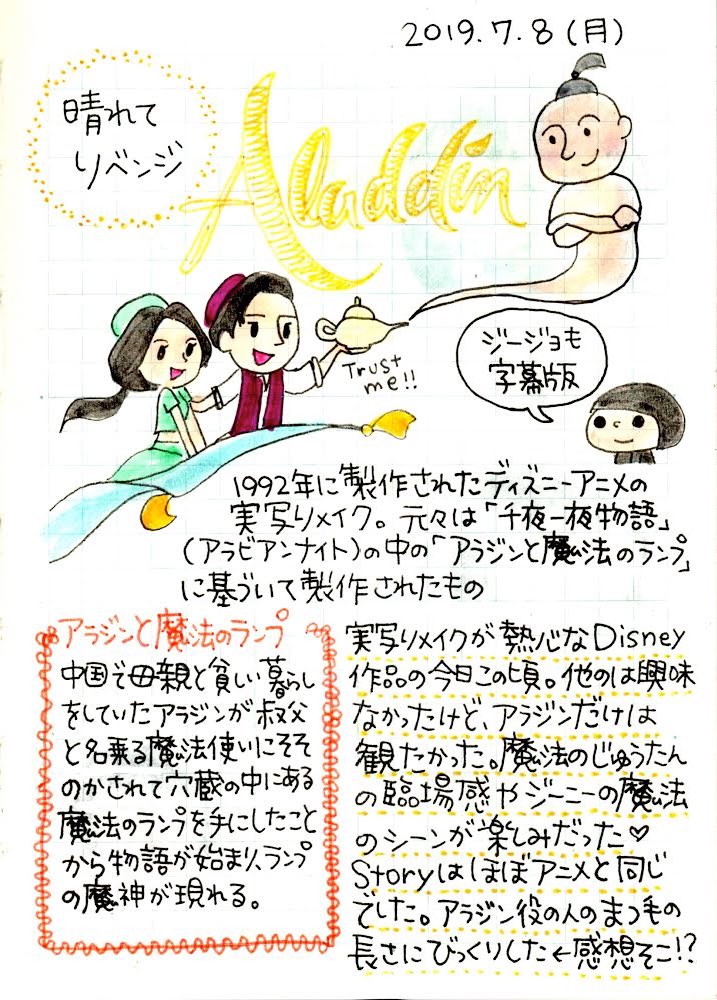 2019.7.8(月)
晴れて
リベンジ
Aladdin
Trust
me!!
ジージョも
字幕版
1992年に製作されたディズニーアニメの
実写リメイク。元々は「千夜一夜物語」
(アラビアンナイト)の中の「アラジンと魔法のランプ」
に基づいて製作されたもの
アラジンと魔法のランプ
中国で母親と貧しい暮らし
をしていたアラジンが叔父
と名乗る魔法使いにそそ
のかされて穴蔵の中にある
魔法のランプを手にしたこと
から物語が始まり、ランプ
の魔神が現れる。
実写リメイクが熱心なDisney
作品の今日この頃。他のは興味
なかったけど、アラジンだけは
観たかった。魔法のじゅうたん
の臨場感やジーニーの魔法
のシーンが楽しみだった♡
Storyはほぼアニメと同じ
でした。アラジン役の人のまつ毛の
長さにびっくりした←感想そこ!?